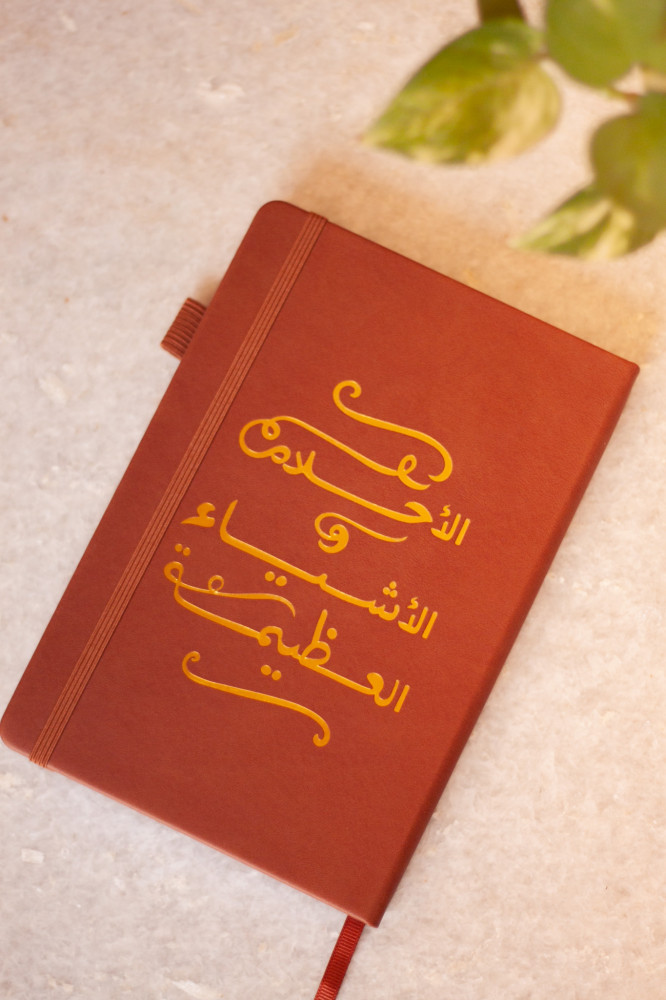 الأحلام
و
الأشياء
العظيمة